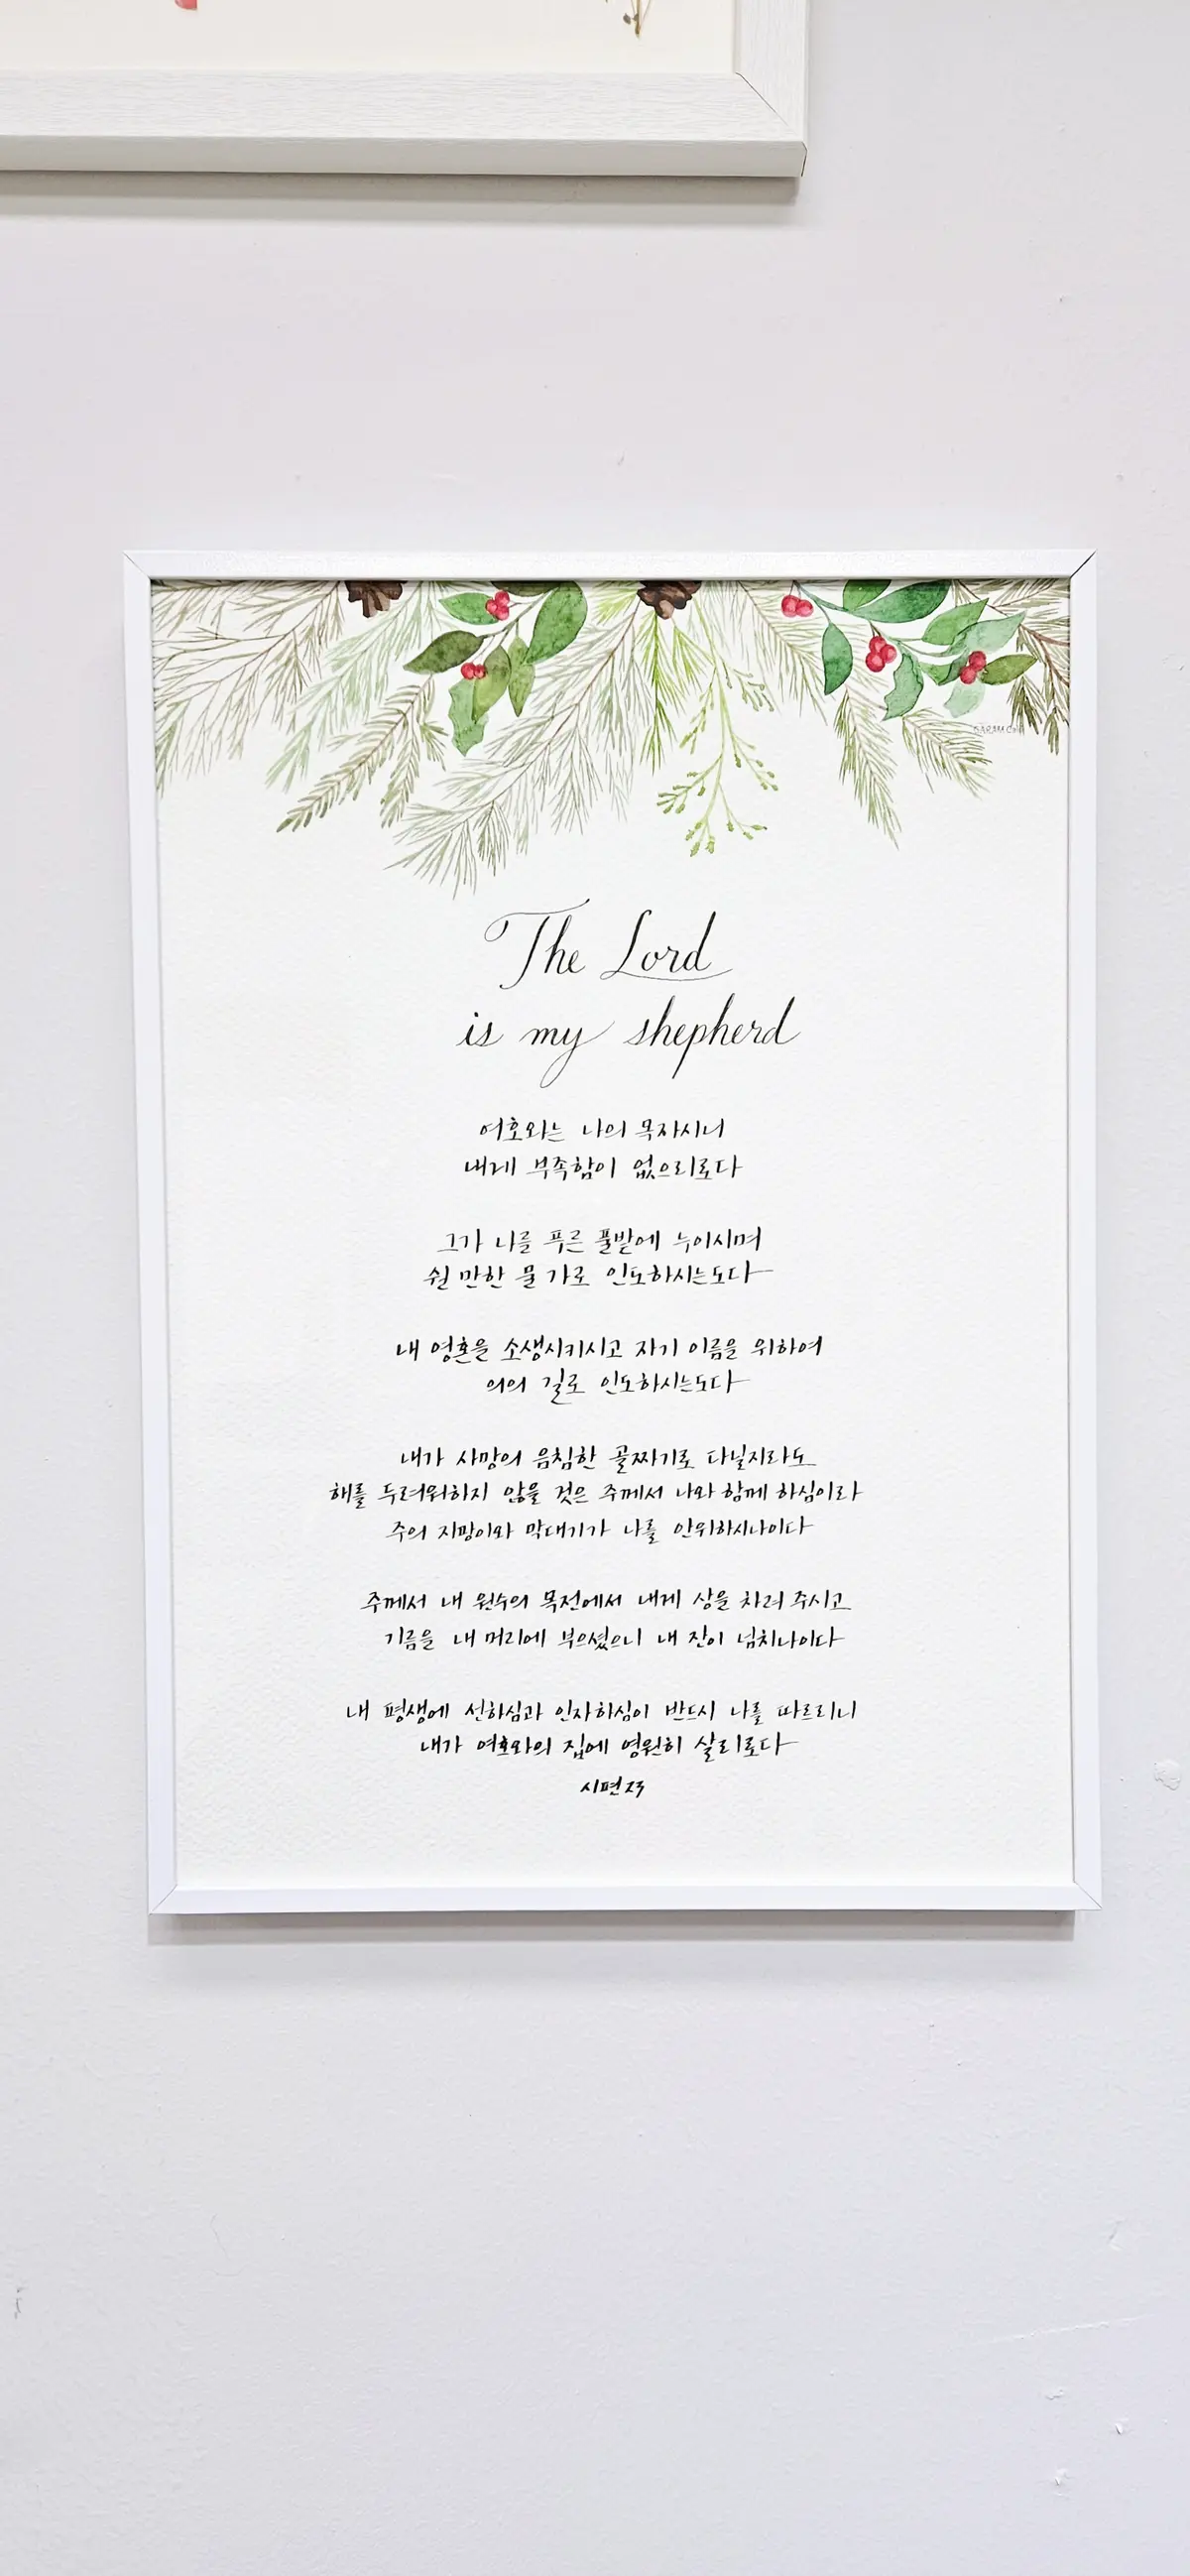 The Lord
is my shepherd
여호와는 나의 목자시니
내게 부족함이 없으리로다
그가 나를 푸른 풀밭에 누이시며
쉴 만한 물 가로 인도하시는도다
내 영혼을 소생시키시고 자기 이름을 위하여
의의 길로 인도하시는도다
내가 사망의 음침한 골짜기로 다닐지라도
해를 두려워하지 않을 것은 주께서 나와 함께 하심이라
주의 지팡이와 막대기가 나를 안위하시나이다
주께서 내 원수의 목전에서 내게 상을 차려 주시고
기름을 내 머리에 부으셨으니 내 잔이 넘치나이다
내 평생에 선하심과 인자하심이 반드시 나를 따르리니
내가 여호와의 집에 영원히 살리로다
시편 23